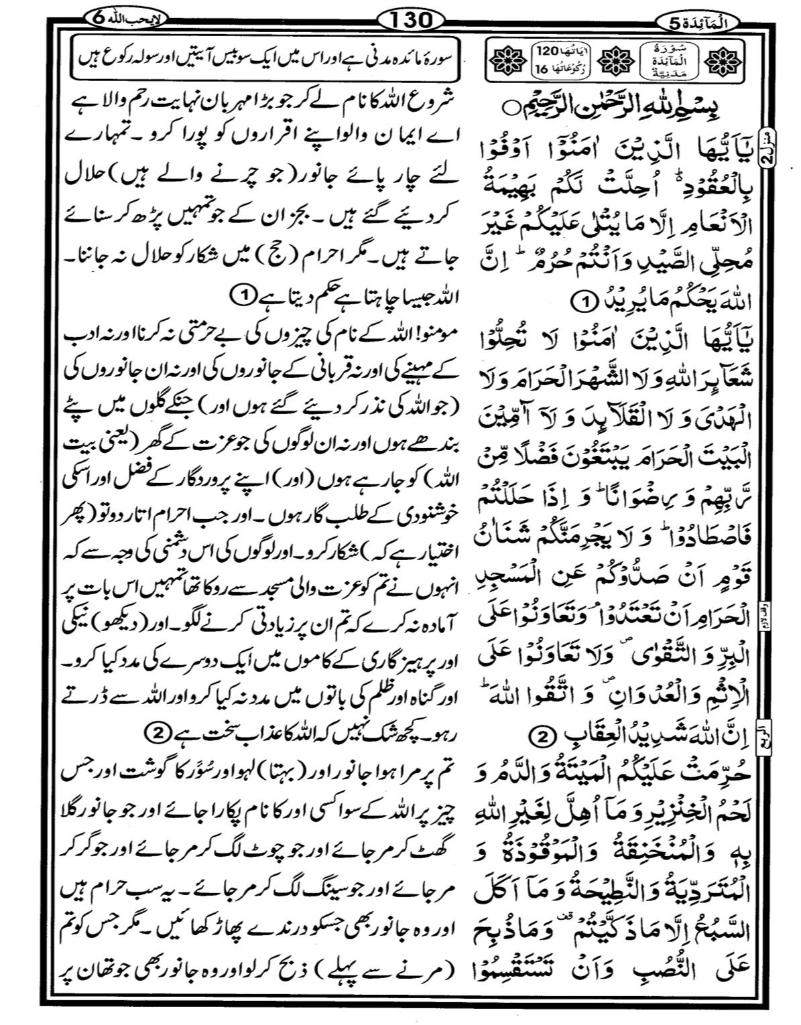 المآئدة 5
130
لا يحب الله 6
سُوۡرَةُ
الۡمَآئِدَةِ
مَدَنِيَّةٌ
اٰيَاتُهَا 120
رُكُوۡعَاتُهَا 16
سورۂ مائدہ مدنی ہے اور اس میں ایک سو بیس آیتیں اور سولہ رکوع ہیں
بِسۡمِ اللّٰهِ الرَّحۡمٰنِ الرَّحِيۡمِ
يٰۤاَيُّهَا الَّذِيۡنَ اٰمَنُوۡۤا اَوۡفُوۡا
بِالۡعُقُوۡدِ ؕ اُحِلَّتۡ لَـكُمۡ بَهِيۡمَةُ
الۡاَنۡعَامِ اِلَّا مَا يُتۡلٰى عَلَيۡكُمۡ غَيۡرَ
مُحِلِّى الصَّيۡدِ وَاَنۡـتُمۡ حُرُمٌ ؕ اِنَّ
اللّٰهَ يَحۡكُمُ مَا يُرِيۡدُ ①
يٰۤاَيُّهَا الَّذِيۡنَ اٰمَنُوۡا لَا تُحِلُّوۡا
شَعَآٮِٕرَ اللّٰهِ وَلَا الشَّهۡرَ الۡحَـرَامَ وَلَا
الۡهَدۡىَ وَلَا الۡقَلَٓاٮِٕدَ وَلَاۤ آٰمِّيۡنَ
الۡبَيۡتَ الۡحَـرَامَ يَبۡـتَغُوۡنَ فَضۡلًا مِّنۡ
رَّبِّهِمۡ وَرِضۡوَانًا ؕ وَاِذَا حَلَلۡتُمۡ
فَاصۡطَادُوۡا ؕ وَلَا يَجۡرِمَنَّكُمۡ شَنَاٰنُ
قَوۡمٍ اَنۡ صَدُّوۡكُمۡ عَنِ الۡمَسۡجِدِ
الۡحَـرَامِ اَنۡ تَعۡتَدُوۡا ۘ وَتَعَاوَنُوۡا عَلَى
الۡبِرِّ وَالتَّقۡوٰى ۖ وَلَا تَعَاوَنُوۡا عَلَى
الۡاِثۡمِ وَالۡعُدۡوَانِ ۖ وَاتَّقُوا اللّٰهَ ؕ
اِنَّ اللّٰهَ شَدِيۡدُ الۡعِقَابِ ②
حُرِّمَتۡ عَلَيۡكُمُ الۡمَيۡتَةُ وَالدَّمُ وَ
لَحۡمُ الۡخِنۡزِيۡرِ وَمَاۤ اُهِلَّ لِغَيۡرِ اللّٰهِ
بِهٖ وَالۡمُنۡخَنِقَةُ وَالۡمَوۡقُوۡذَةُ وَ
الۡمُتَرَدِّيَةُ وَالنَّطِيۡحَةُ وَمَاۤ اَكَلَ
السَّبُعُ اِلَّا مَا ذَكَّيۡتُمۡ ۟ وَمَا ذُبِحَ
عَلَى النُّصُبِ وَاَنۡ تَسۡتَقۡسِمُوۡا
شروع اللہ کا نام لے کر جو بڑا مہربان نہایت رحم والا ہے
اے ایمان والو اپنے اقراروں کو پورا کرو۔ تمہارے
لئے چار پائے جانور (جو چرنے والے ہیں) حلال
کر دیئے گئے ہیں۔ بجز ان کے جو تمہیں پڑھ کر سنائے
جاتے ہیں۔ مگر احرام (حج) میں شکار کو حلال نہ جاننا۔
اللہ جیسا چاہتا ہے حکم دیتا ہے ①
مومنو! اللہ کے نام کی چیزوں کی بے حرمتی نہ کرنا اور نہ ادب
کے مہینے کی اور نہ قربانی کے جانوروں کی اور نہ ان جانوروں کی
(جو اللہ کی نذر کر دیئے گئے ہوں اور) جنکے گلوں میں پٹے
بندھے ہوں اور نہ ان لوگوں کی جو عزت کے گھر (یعنی بیت
اللہ) کو جا رہے ہوں (اور) اپنے پروردگار کے فضل اور اسکی
خوشنودی کے طلب گار ہوں۔ اور جب احرام اتار دو تو (پھر
اختیار ہے کہ) شکار کرو۔ اور لوگوں کی اس دشمنی کی وجہ سے کہ
انہوں نے تم کو عزت والی مسجد سے روکا تھا تمہیں اس بات پر
آمادہ نہ کرے کہ تم ان پر زیادتی کرنے لگو۔ اور (دیکھو) نیکی
اور پرہیز گاری کے کاموں میں ایک دوسرے کی مدد کیا کرو۔
اور گناہ اور ظلم کی باتوں میں مدد نہ کیا کرو اور اللہ سے ڈرتے
رہو۔ کچھ شک نہیں کہ اللہ کا عذاب سخت ہے ②
تم پر مرا ہوا جانور اور (بہتا) لہو اور سؤر کا گوشت اور جس
چیز پر اللہ کے سوا کسی اور کا نام پکارا جائے اور جو جانور گلا
گھٹ کر مر جائے اور جو چوٹ لگ کر مر جائے اور جو گر کر
مر جائے اور جو سینگ لگ کر مر جائے۔ یہ سب حرام ہیں
اور وہ جانور بھی جسکو درندے پھاڑ کھائیں۔ مگر جس کو تم
(مرنے سے پہلے) ذبح کر لو اور وہ جانور بھی جو تھان پر
منزل 2
وقف لازم
الربع